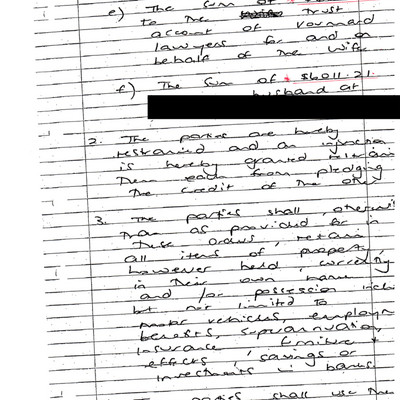 e) The sum of $
to the Trust
account of Vounard
lawyers for and on
behalf of the Wife
f) The sum of $6011.21.
husband at
2. The parties are hereby
restrained and an injunction
is hereby granted restrain
them each from pledging
the credit of the other
3. The parties shall, otherwis
than as provided for in
these orders, retain
all items of property,
however held, currently
in their own name
and/or possession incl
but not limited to
motor vehicles, employm
benefits, superannuation,
insurance, furniture +
effects, savings or
investments in banks.
parties shall use the